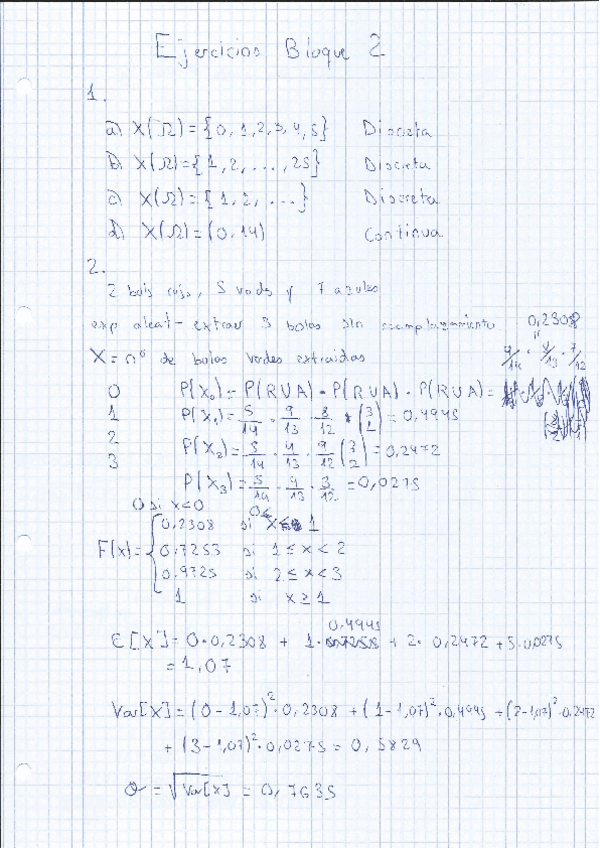 Ejercicios Bloque 2
1.
a) X(Ω) = {0, 1, 2, 3, 4, 5} Discreta
b) X(Ω) = {1, 2, ..., 25} Discreta
c) X(Ω) = {1, 2, ...} Discreta
d) X(Ω) = (0, 14) Continua
2.
2 bolas rojas, 5 verdes y 7 azules
exp aleat - extraer 3 bolas sin reemplazamiento 0,2308
X = nº de bolas verdes extraidas 9/14 · 8/13 · 7/12
0 P(X₀) = P(RUA) · P(RUA) · P(RUA) =
1 P(X₁) = 5/14 · 9/13 · 8/12 · (3 1) = 0,4945
2 P(X₂) = 5/14 · 4/13 · 9/12 (3 2) = 0,2472
3 P(X₃) = 5/14 · 4/13 · 3/12 = 0,0275
0 si x<0
0,2308 si 0≤ x < 1
F(x) = 0,7253 si 1 ≤ x < 2
0,9725 si 2 ≤ x < 3
1 si x ≥ 1
E[X] = 0·0,2308 + 1·0,4945 + 2·0,2472 + 3·0,0275
= 1,07
Var[X] = (0-1,07)²·0,2308 + (1-1,07)²·0,4945 + (2-1,07)²·0,2472
+ (3-1,07)²·0,0275 = 0,5829
σ = √Var[X] = 0,7635